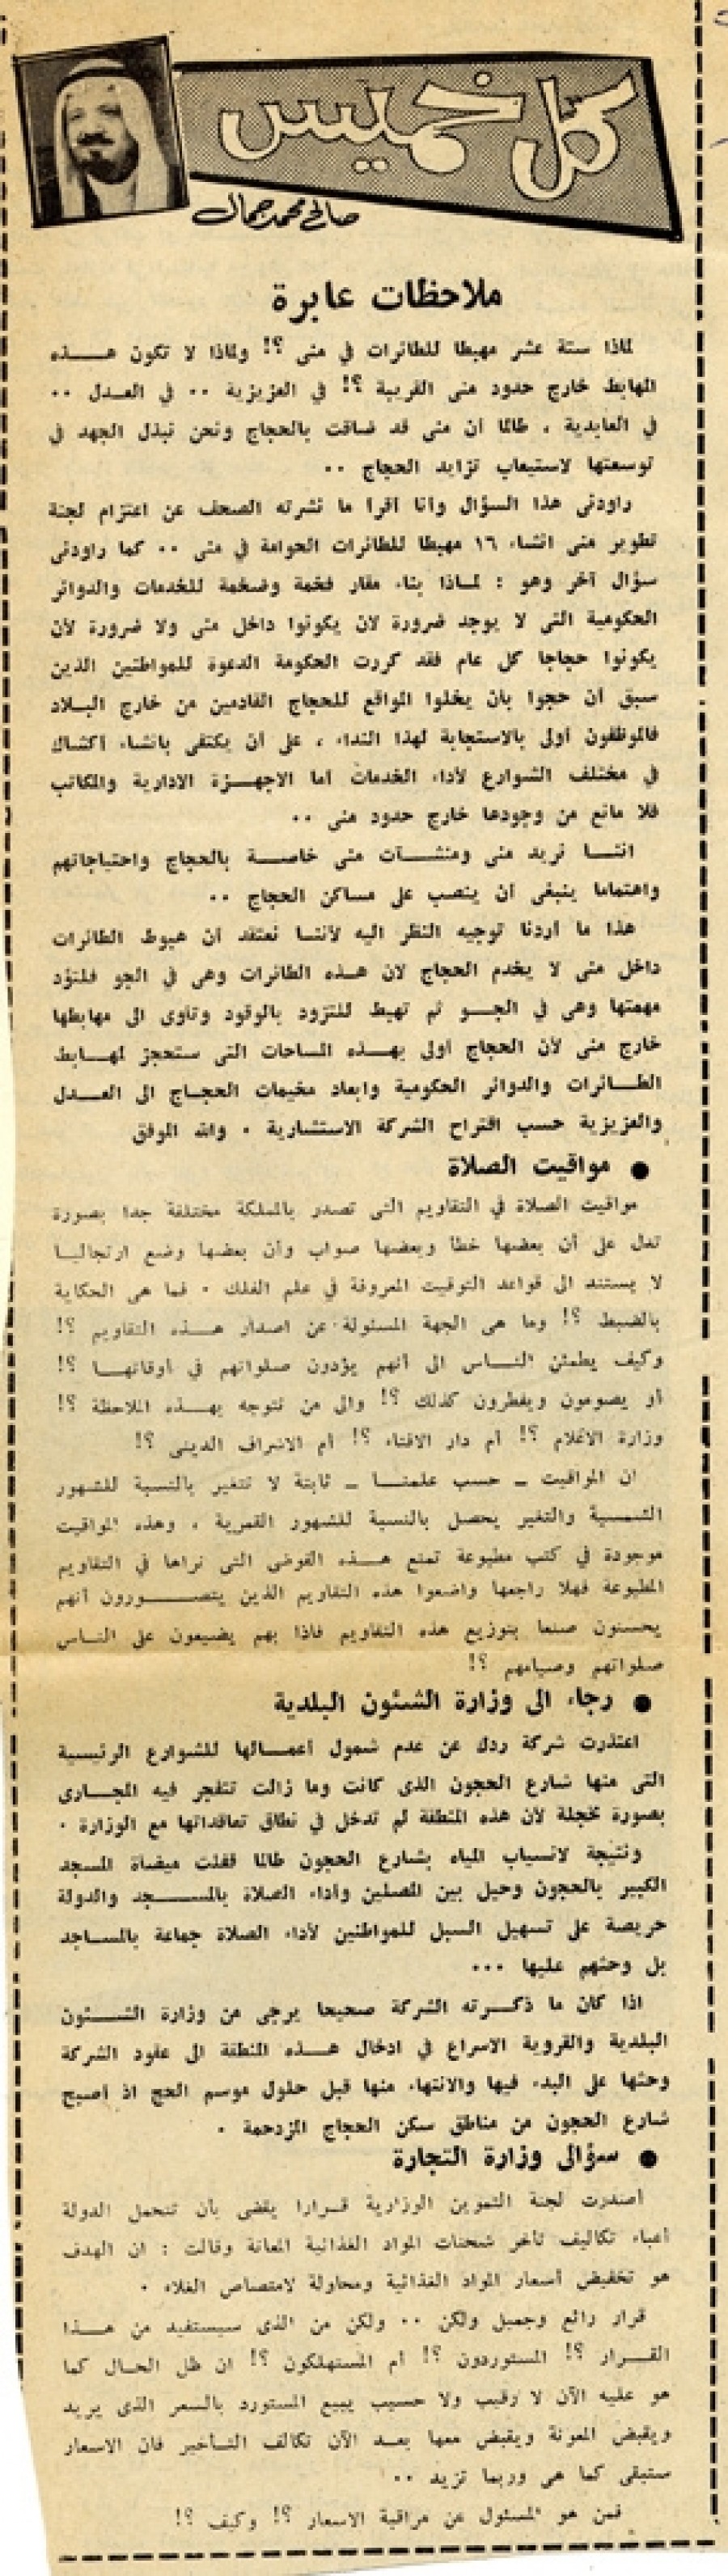 كل خميس
صالح محمد جمال
ملاحظات عابرة
لماذا ستة عشر مهبطا للطائرات في منى ؟! ولماذا لا تكون هذه
المهابط خارج حدود منى القريبة ؟! في العزيزية .. في العدل ..
في العابدية ، طالما أن منى قد ضاقت بالحجاج ونحن نبذل الجهد في
توسعتها لاستيعاب تزايد الحجاج ..
راودنى هذا السؤال وأنا أقرأ ما نشرته الصحف عن اعتزام لجنة
تطوير منى انشاء ١٦ مهبطا للطائرات الحوامة في منى .. كما راودنى
سؤال آخر وهو : لماذا بناء مقار فخمة وضخمة للخدمات والدوائر
الحكومية التى لا يوجد ضرورة لان يكونوا داخل منى ولا ضرورة لأن
يكونوا حجاجا كل عام فقد كررت الحكومة الدعوة للمواطنين الذين
سبق أن حجوا بأن يخلوا المواقع للحجاج القادمين من خارج البلاد
فالموظفون أولى بالاستجابة لهذا النداء ، على أن يكتفى بانشاء أكشاك
في مختلف الشوارع لأداء الخدمات أما الاجهزة الادارية والمكاتب
فلا مانع من وجودها خارج حدود منى ..
اننا نريد منى ومنشآت منى خاصة بالحجاج واحتياجاتهم
واهتماما ينبغى أن ينصب على مساكن الحجاج ..
هذا ما أردنا توجيه النظر اليه لأننا نعتقد أن هبوط الطائرات
داخل منى لا يخدم الحجاج لان هذه الطائرات وهى في الجو فلتؤد
مهمتها وهى في الجو ثم تهبط للتزود بالوقود وتأوى الى مهابطها
خارج منى لأن الحجاج أولى بهذه المساحات التى ستحجز لمهابط
الطائرات والدوائر الحكومية وابعاد مخيمات الحجاج الى العدل
والعزيزية حسب اقتراح الشركة الاستشارية . والله الموفق
● مواقيت الصلاة
مواقيت الصلاة في التقاويم التى تصدر بالمملكة مختلفة جدا بصورة
تدل على أن بعضها خطأ وبعضها صواب وأن بعضها وضع ارتجاليا
لا يستند الى قواعد التوقيت المعروفة في علم الفلك . فما هى الحكاية
بالضبط ؟! وما هى الجهة المسئولة عن اصدار هذه التقاويم ؟!
وكيف يطمئن الناس الى أنهم يؤدون صلواتهم في أوقاتها ؟!
أو يصومون ويفطرون كذلك ؟! والى من نتوجه بهذه الملاحظة ؟!
وزارة الاعلام ؟! أم دار الافتاء ؟! أم الاشراف الدينى ؟!
ان المواقيت ـ حسب علمنا ـ ثابتة لا تتغير بالنسبة للشهور
الشمسية والتغير يحصل بالنسبة للشهور القمرية ، وهذه المواقيت
موجودة في كتب مطبوعة تمنع هذه الفوضى التى نراها في التقاويم
المطبوعة فهلا راجعها واضعوا هذه التقاويم الذين يتصورون أنهم
يحسنون صنعا بتوزيع هذه التقاويم فاذا بهم يضيعون على الناس
صلواتهم وصيامهم ؟!
● رجاء الى وزارة الشئون البلدية
اعتذرت شركة ردك عن عدم شمول أعمالها للشوارع الرئيسية
التى منها شارع الحجون الذى كانت وما زالت تتفجر فيه المجارى
بصورة مخجلة لأن هذه المنطقة لم تدخل في نطاق تعاقداتها مع الوزارة .
ونتيجة لانسياب المياه بشارع الحجون طالما قفلت ميضأة المسجد
الكبير بالحجون وحيل بين المصلين وأداء الصلاة بالمسجد والدولة
حريصة على تسهيل السبل للمواطنين لأداء الصلاة جماعة بالمساجد
بل وحثهم عليها ...
اذا كان ما ذكرته الشركة صحيحا يرجى من وزارة الشئون
البلدية والقروية الاسراع في ادخال هذه المنطقة الى عقود الشركة
وحثها على البدء فيها والانتهاء منها قبل حلول موسم الحج اذ أصبح
شارع الحجون من مناطق سكن الحجاج المزدحمة .
● سؤالى وزارة التجارة
أصدرت لجنة التموين الوزارية قرارا يقضى بأن تتحمل الدولة
أعباء تكاليف تأخر شحنات المواد الغذائية المعانة وقالت : ان الهدف
هو تخفيض أسعار المواد الغذائية ومحاولة لامتصاص الغلاء .
قرار رائع وجميل ولكن .. ولكن من الذى سيستفيد من هذا
القرار ؟! المستوردون ؟! أم المستهلكون ؟! ان ظل الحال كما
هو عليه الآن لا رقيب ولا حسيب يبيع المستورد بالسعر الذى يريد
ويقبض المعونة ويقبض معها بعد الآن تكاليف التأخير فان الاسعار
ستبقى كما هى وربما تزيد ..
فمن هو المسئول عن مراقبة الاسعار ؟! وكيف ؟!